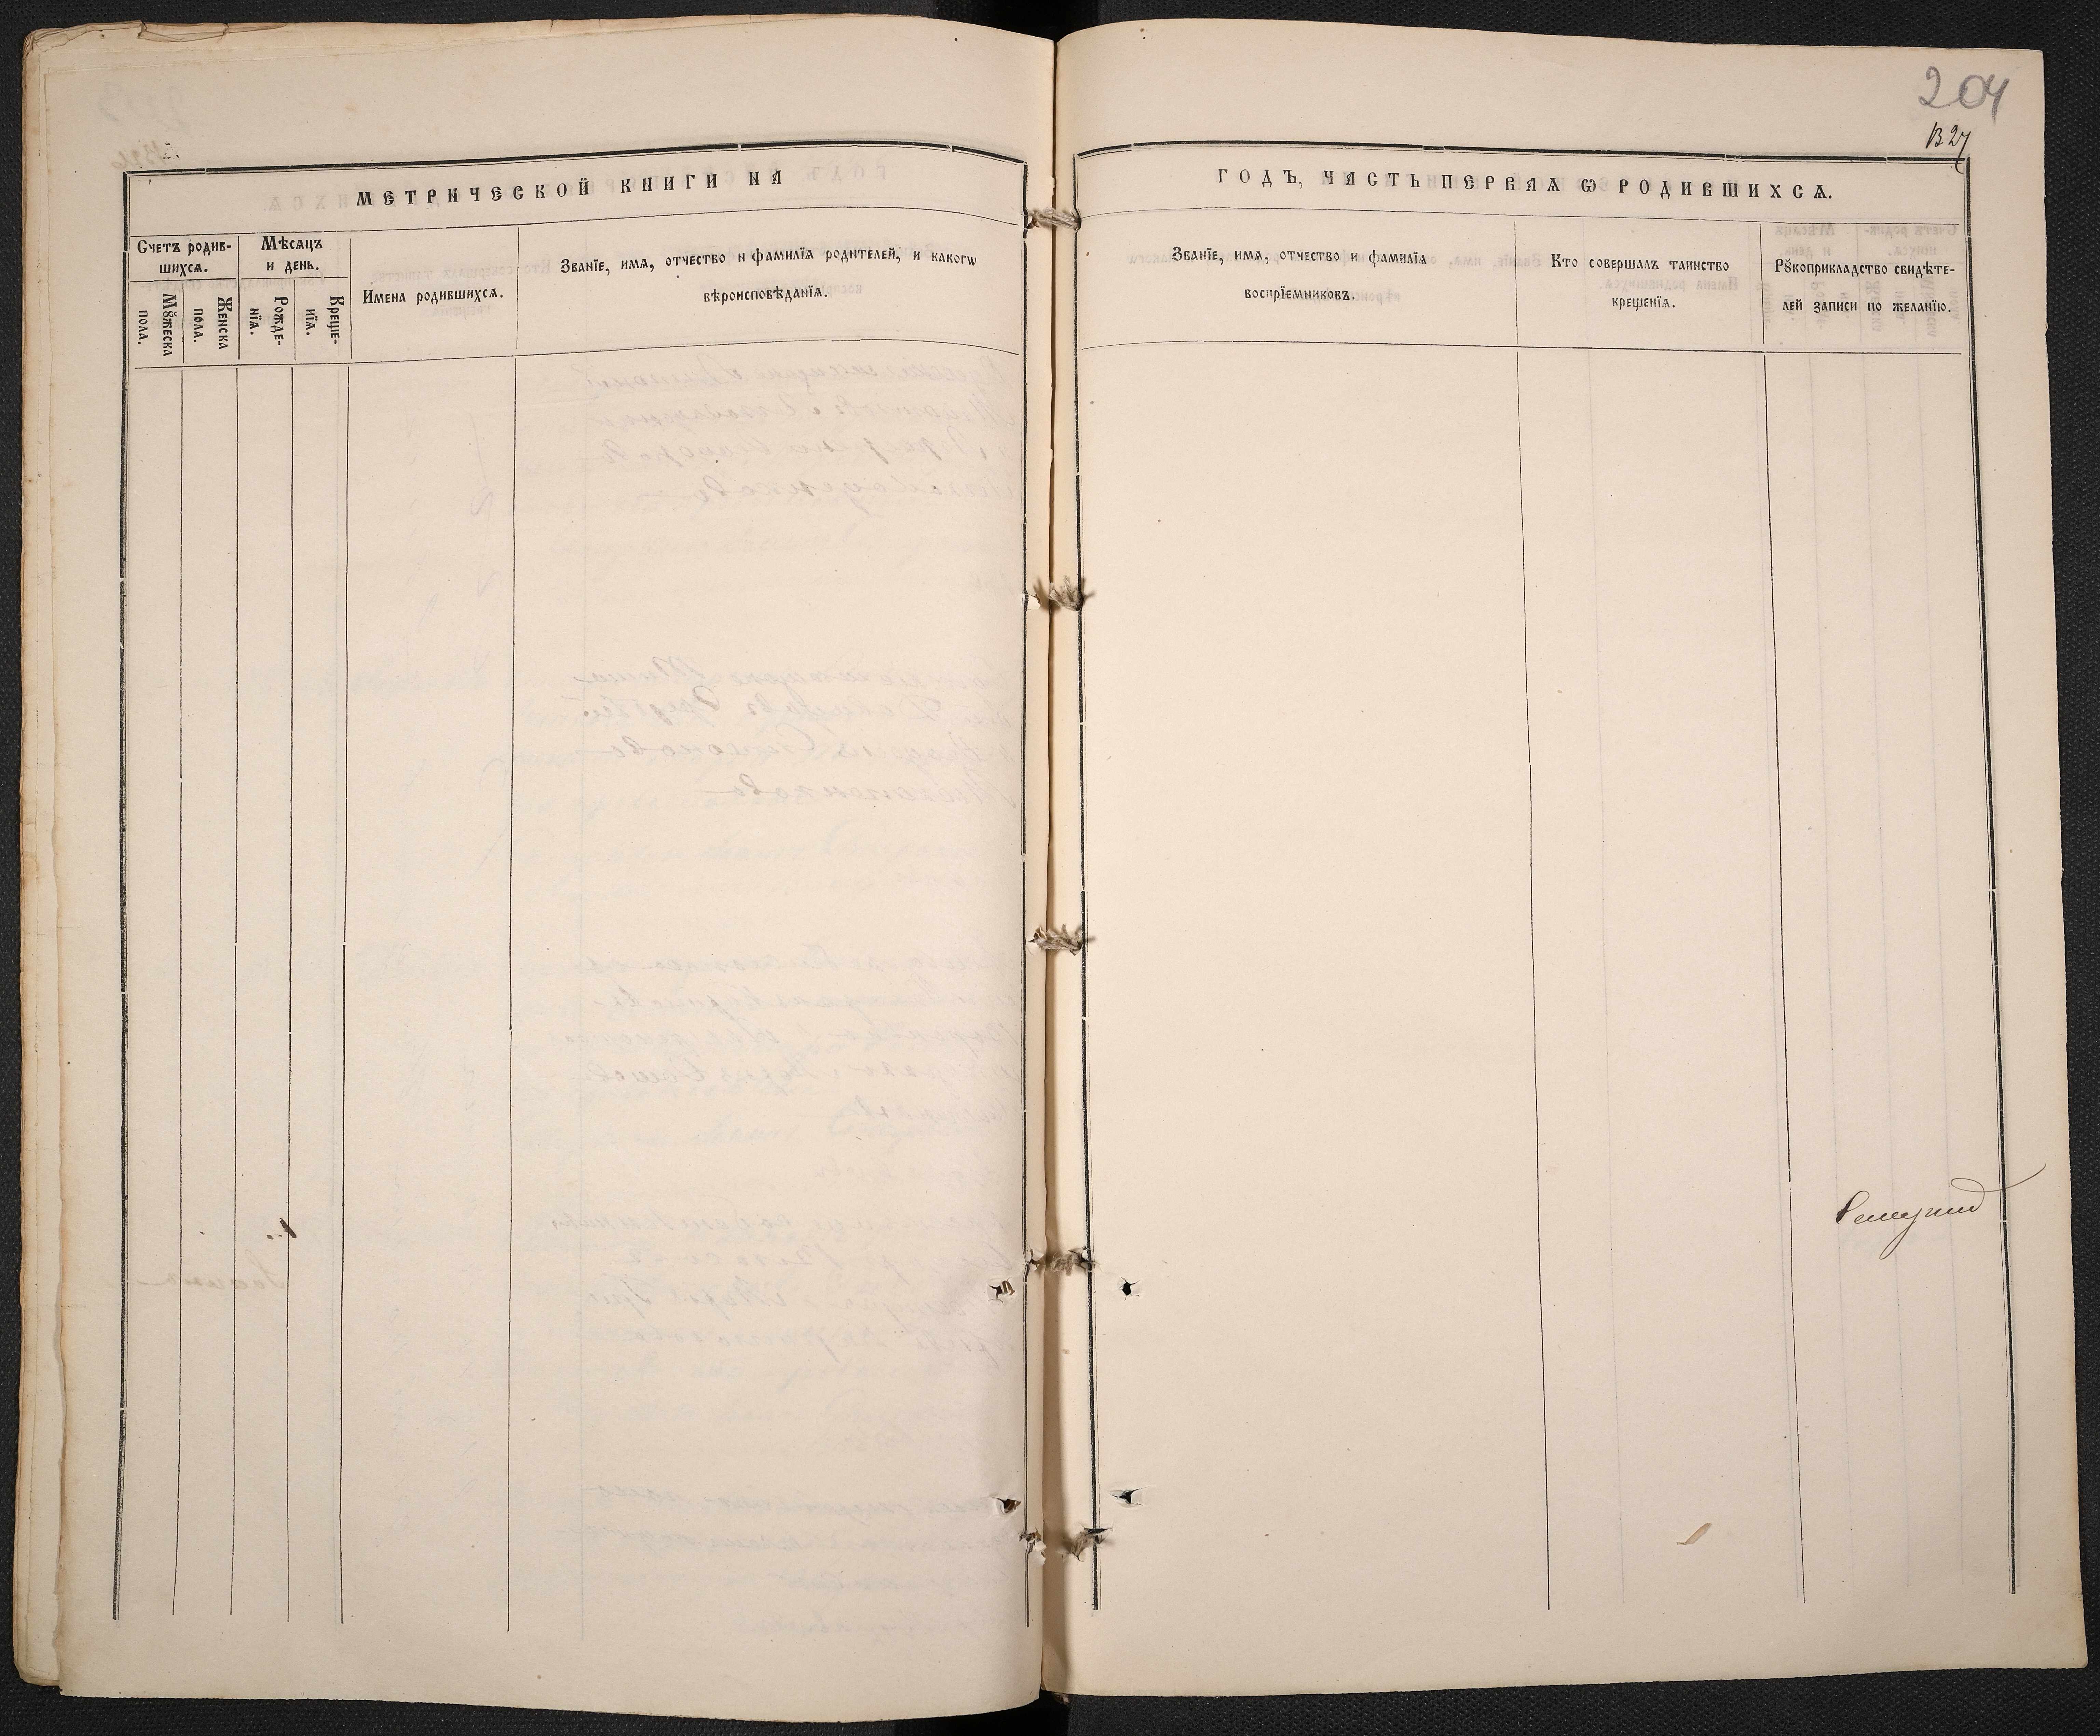 204
1327
МЕТРИЧЕСКОЙ КНИГИ НА
ГОДЪ, ЧАСТЬ ПЕРВАѦ Ѡ РОДИВШИХСѦ.
Счетъ родив-
шихсѧ.
Мѣсѧцъ
и день.
Мꙋжеска
пола.
Женска
пола.
Рожде-
нїѧ.
Креще-
нїѧ.
Имена родившихсѧ.
Званїе, имѧ, отчество и фамилїѧ родителей, и какогѡ
вѣроисповѣданїѧ.
Званїе, имѧ, отчество и фамилїѧ
воспрїемниковъ.
Кто совершалъ таинство
крещенїѧ.
Рꙋкоприкладство свидѣте-
лей записи по желанїю.